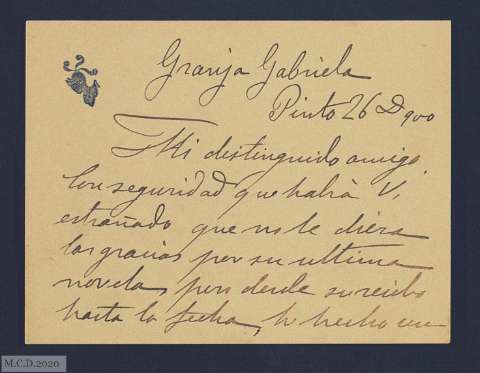 Granja Gabriela
Pinto 26 D 900
Mi distinguido amigo,
Con seguridad que habrá V.
estrañado que no le diera
las gracias por su ultima
novela, pero desde su recibo
hasta la fecha, he hecho un
M.C.D.2020